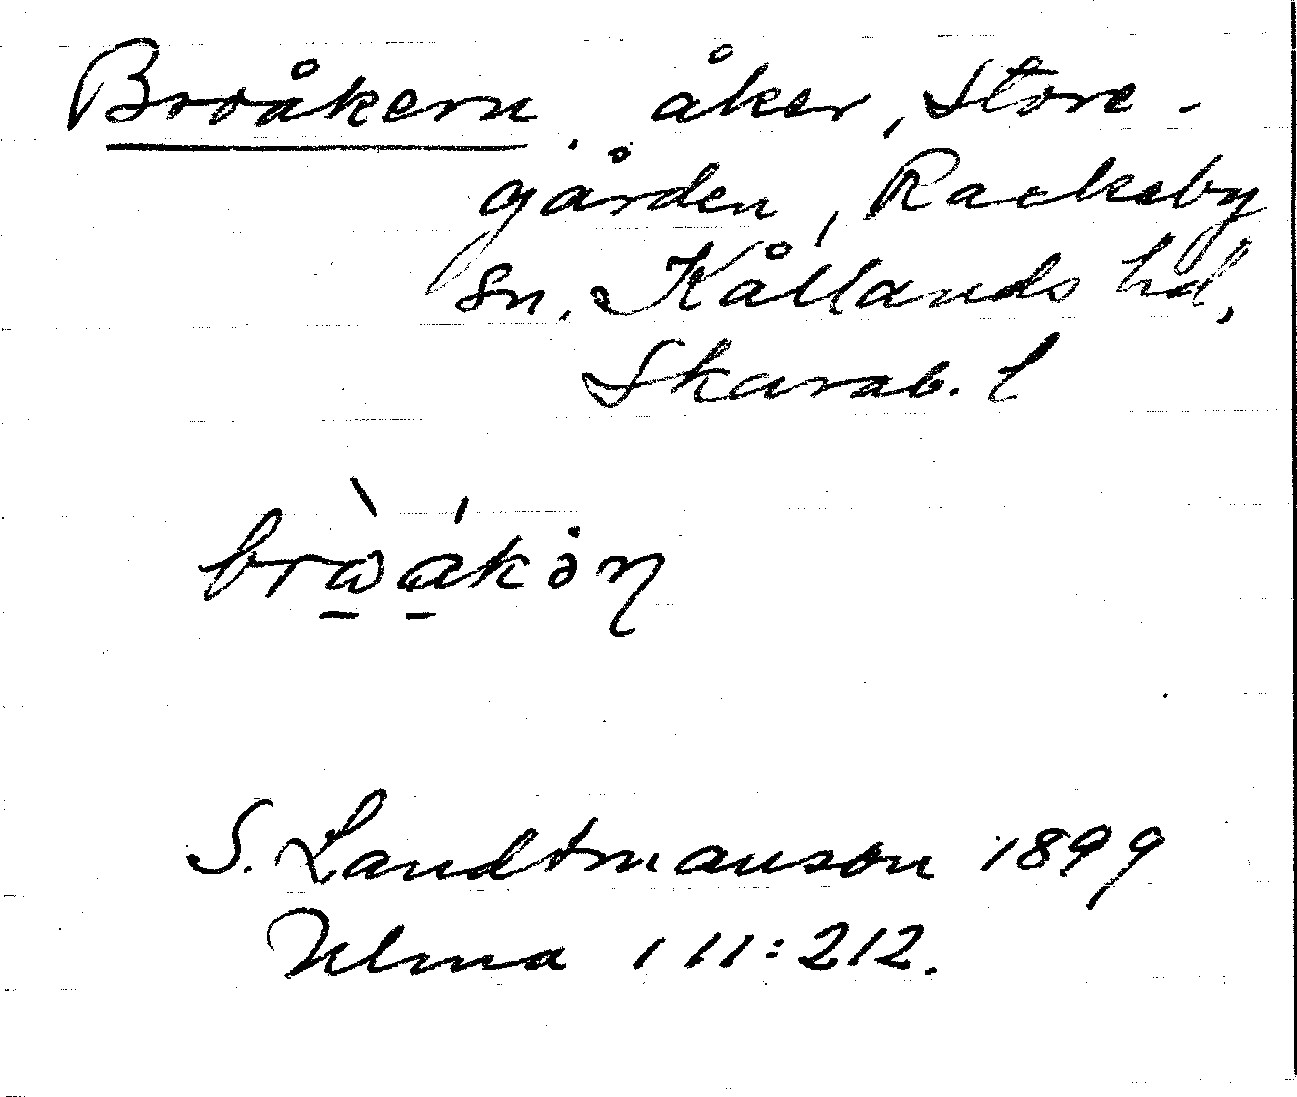 Broåkern, åker, Store-
gården, Rackeby
sn, Kållands hd,
Skarab. l
S. Landtmanson 1899
Ulma 111:212.